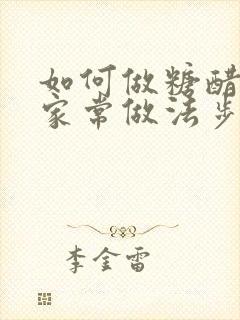 如何做糖醋
家常做法步
李金雷